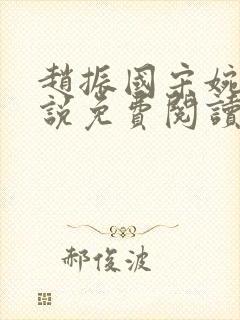 趙振國宋婉
說免費閱讀
郝俊波